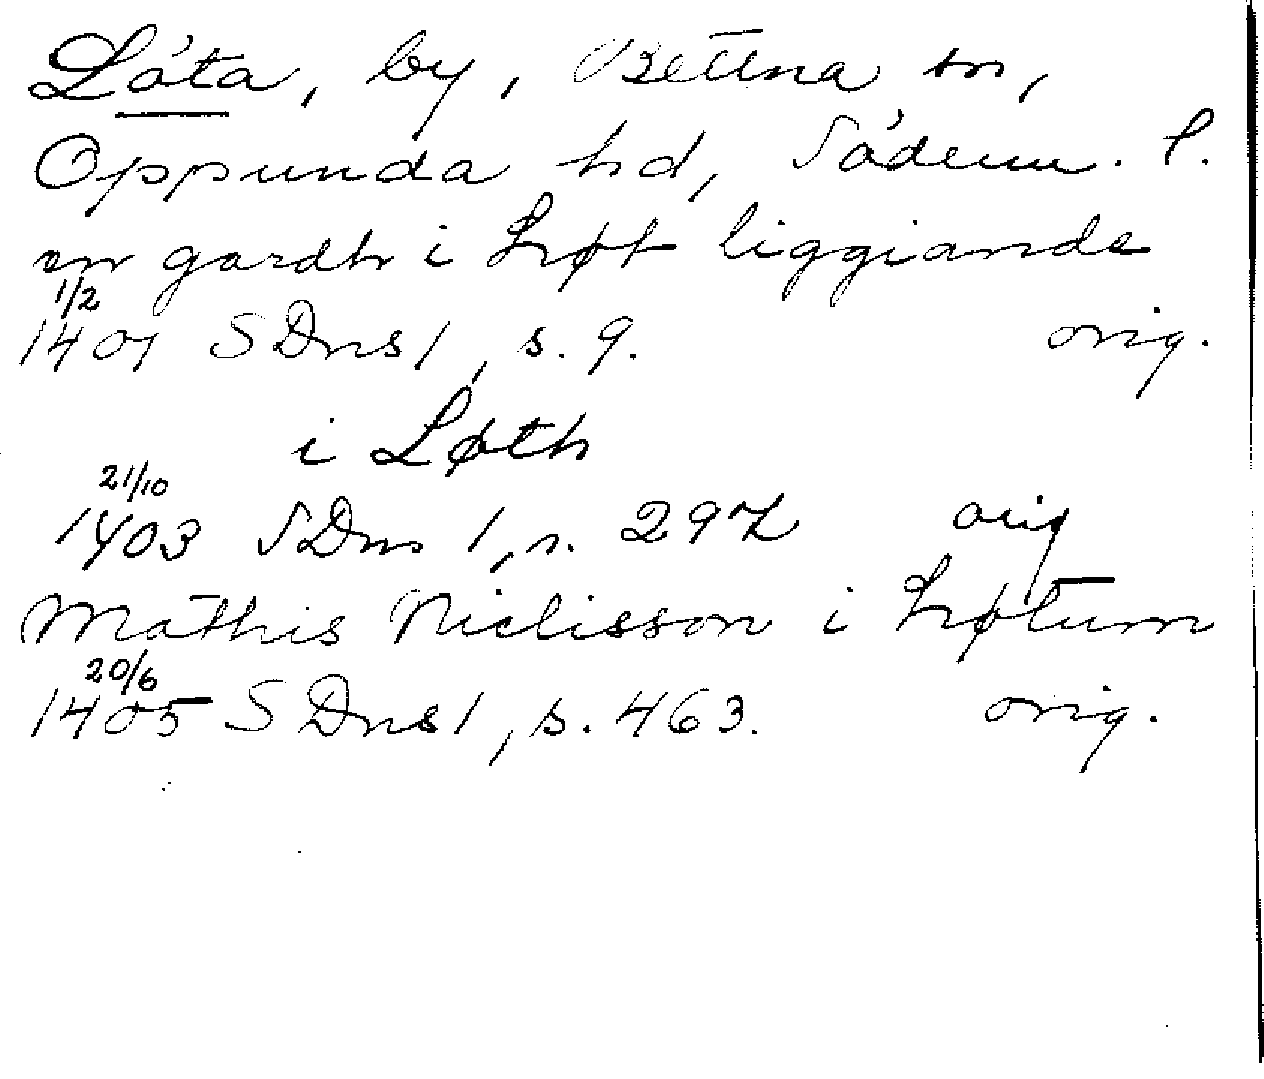 Löta, by, Bettna sn,
Oppunda hd, Söderm. l.
en gardh i Hrøt liggiande
1/2
1401 SDns 1, s. 9. orig.
i Løth
21/10
1403 SDns 1, s. 297 orig
Mathis Niclisson i Hrøtum
20/6
1405 SDns 1, s. 463. orig.